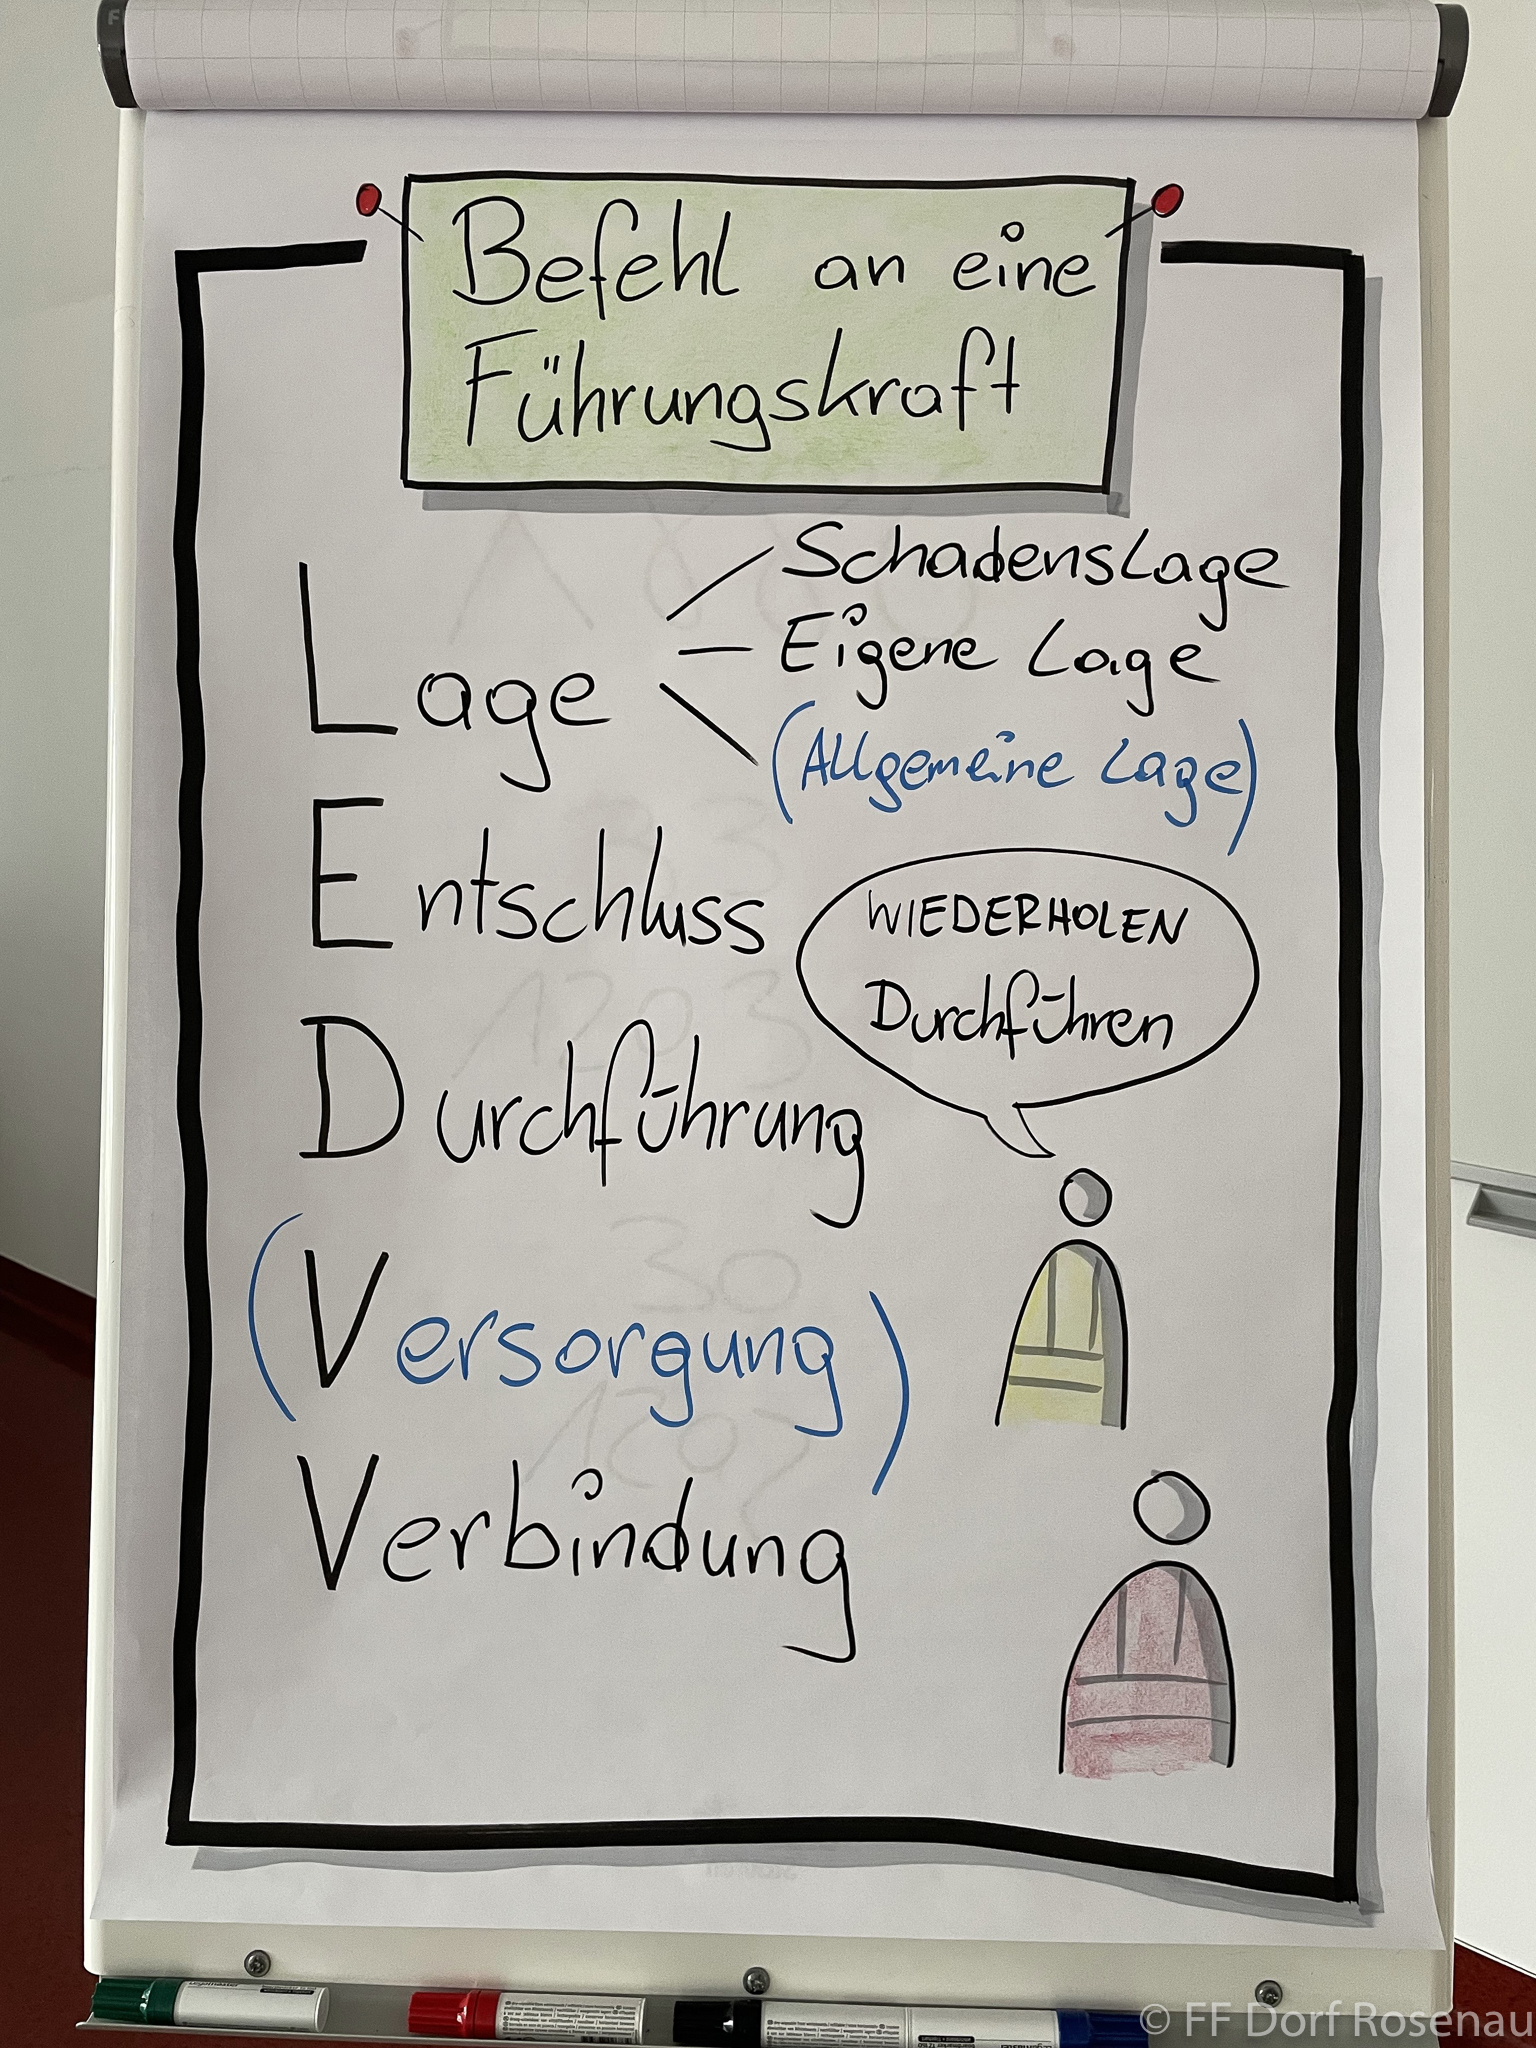 Befehl an eine
Führungskraft
Lage
Schadenslage
Eigene Lage
(Allgemeine Lage)
Entschluss
WIEDERHOLEN
Durchführen
Durchführung
(Versorgung)
Verbindung
© FF Dorf Rosenau